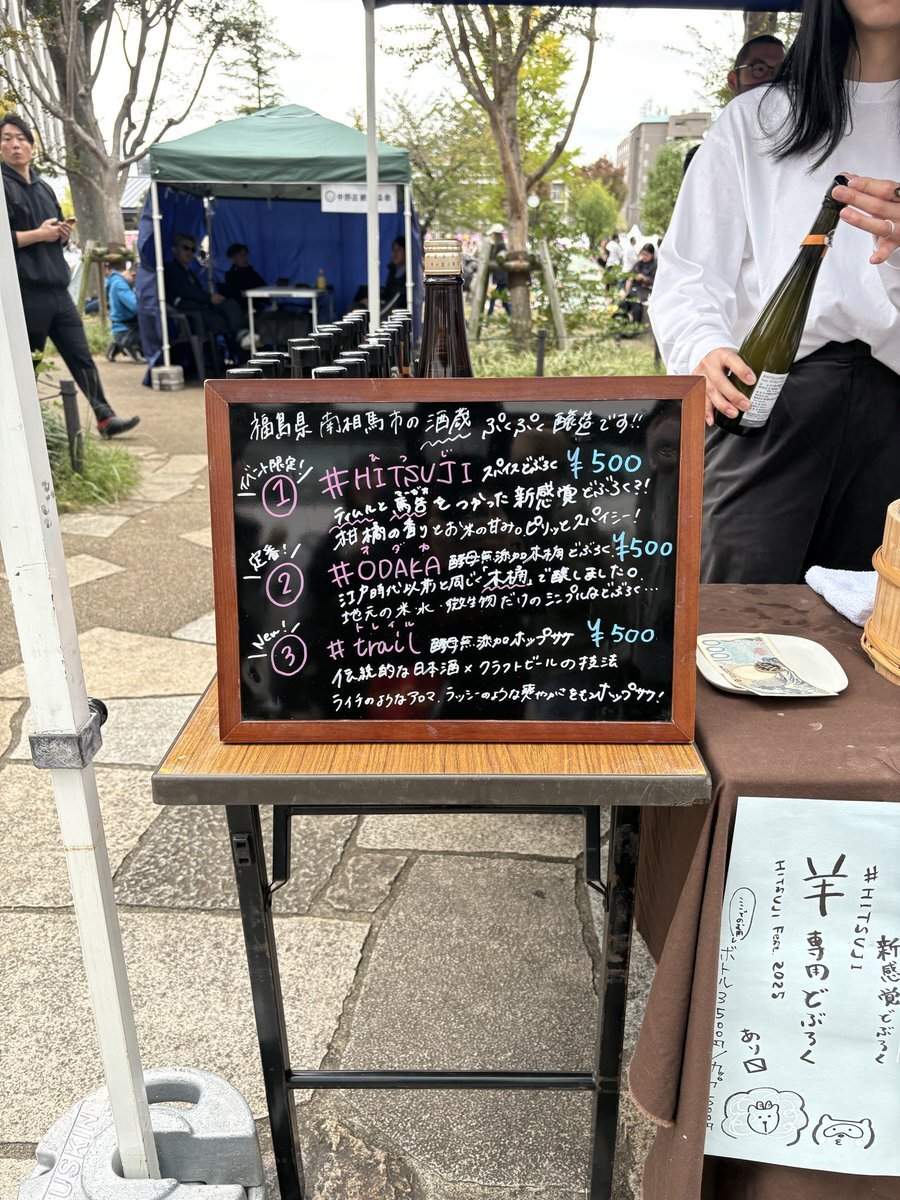 福島県 南相馬市の酒蔵 ぷくぷく醸造です!!
イベント限定!
① #HITSUJI スパイスどぶろく ¥500
ひつじ
ティムルと をつかった新感覚どぶろく?!
柑橘の香りとお米の甘みのピリッとスパイシー!
定番!
② #ODAKA 酵母無添加木桶どぶろく ¥500
オダカ
江戸時代以前と同じ"木桶"で醸しました。
地元の米、水、微生物だけのシンプルなどぶろく…
New!
③ #trail 酵母無添加ホップサケ ¥500
トレイル
伝統的な日本酒×クラフトビールの技法
ライチのようなアロマ、ラッシーのような爽やかさをもつホップサケ!
#HITSUJI
新感覚どぶろく
羊専用どぶろく
HITSUJI Fest. 2025
あり〼
ボトル3500円/カップ
中野区